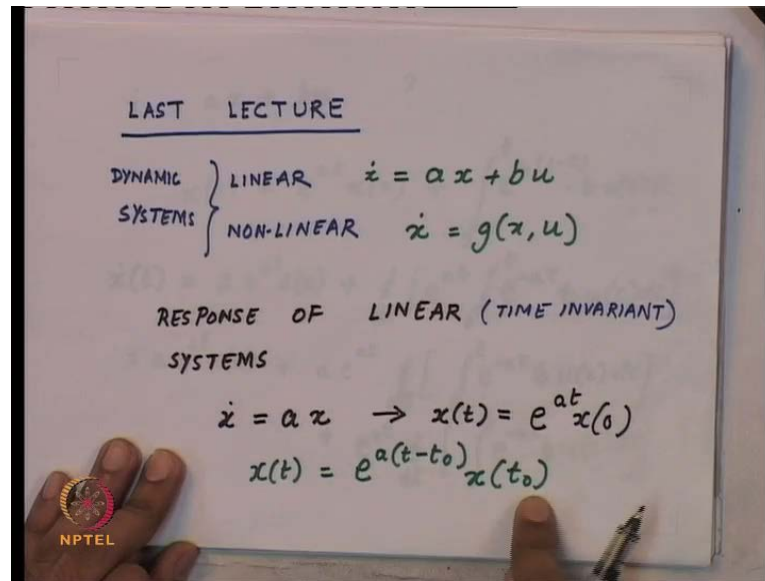 LAST LECTURE
DYNAMIC SYSTEMS } LINEAR ẋ = ax + bu
NON-LINEAR ẋ = g(x, u)
RESPONSE OF LINEAR (TIME INVARIANT)
SYSTEMS
ẋ = ax → x(t) = e^{at} x(0)
x(t) = e^{a(t-t₀)} x(t₀)
NPTEL